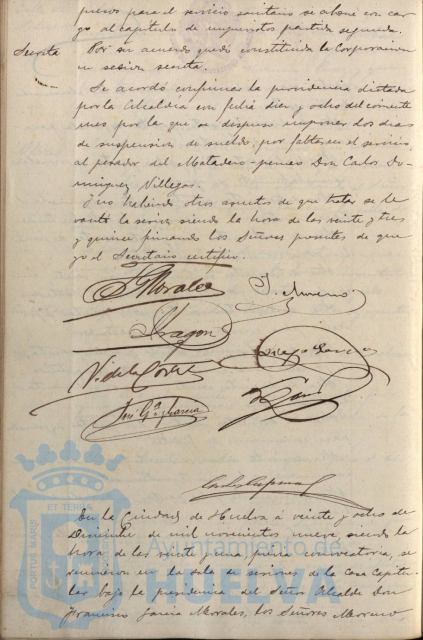 puesto para el servicio sanitario se abone con car-
go al capítulo de imprevistos partida segunda.
Secreta
Por su acuerdo quedó constituida la Corporación
en sesión secreta.
Se acordó confirmar la providencia dictada
por la Alcaldía con fecha diez y ocho del corriente
mes por la que se dispuso imponer dos dias
de suspension de sueldo, por faltas en el servicio,
al pesador del Matadero Don Carlos Do-
minguez Villegas.
Y no habiendo otros asuntos de que tratar se le-
vantó la sesión siendo la hora de las veinte y tres
y quince firmando los Señores presentes de que
yo el Secretario certifico.
Morales
J. Moreno
Aragon
V. de la Corte
José García
En la Ciudad de Huelva á veinte y ocho de
Diciembre de mil novecientos nueve siendo la
hora de las veinte y una previa convocatoria, se
reunieron en la sala de sesiones de la Casa Capitu-
lar bajo la presidencia del Señor Alcalde Don
Francisco Garcia Morales, los Señores Moreno,
PORTUS MARIS
ET TERRÆ
Ayuntamiento de
HUELVA